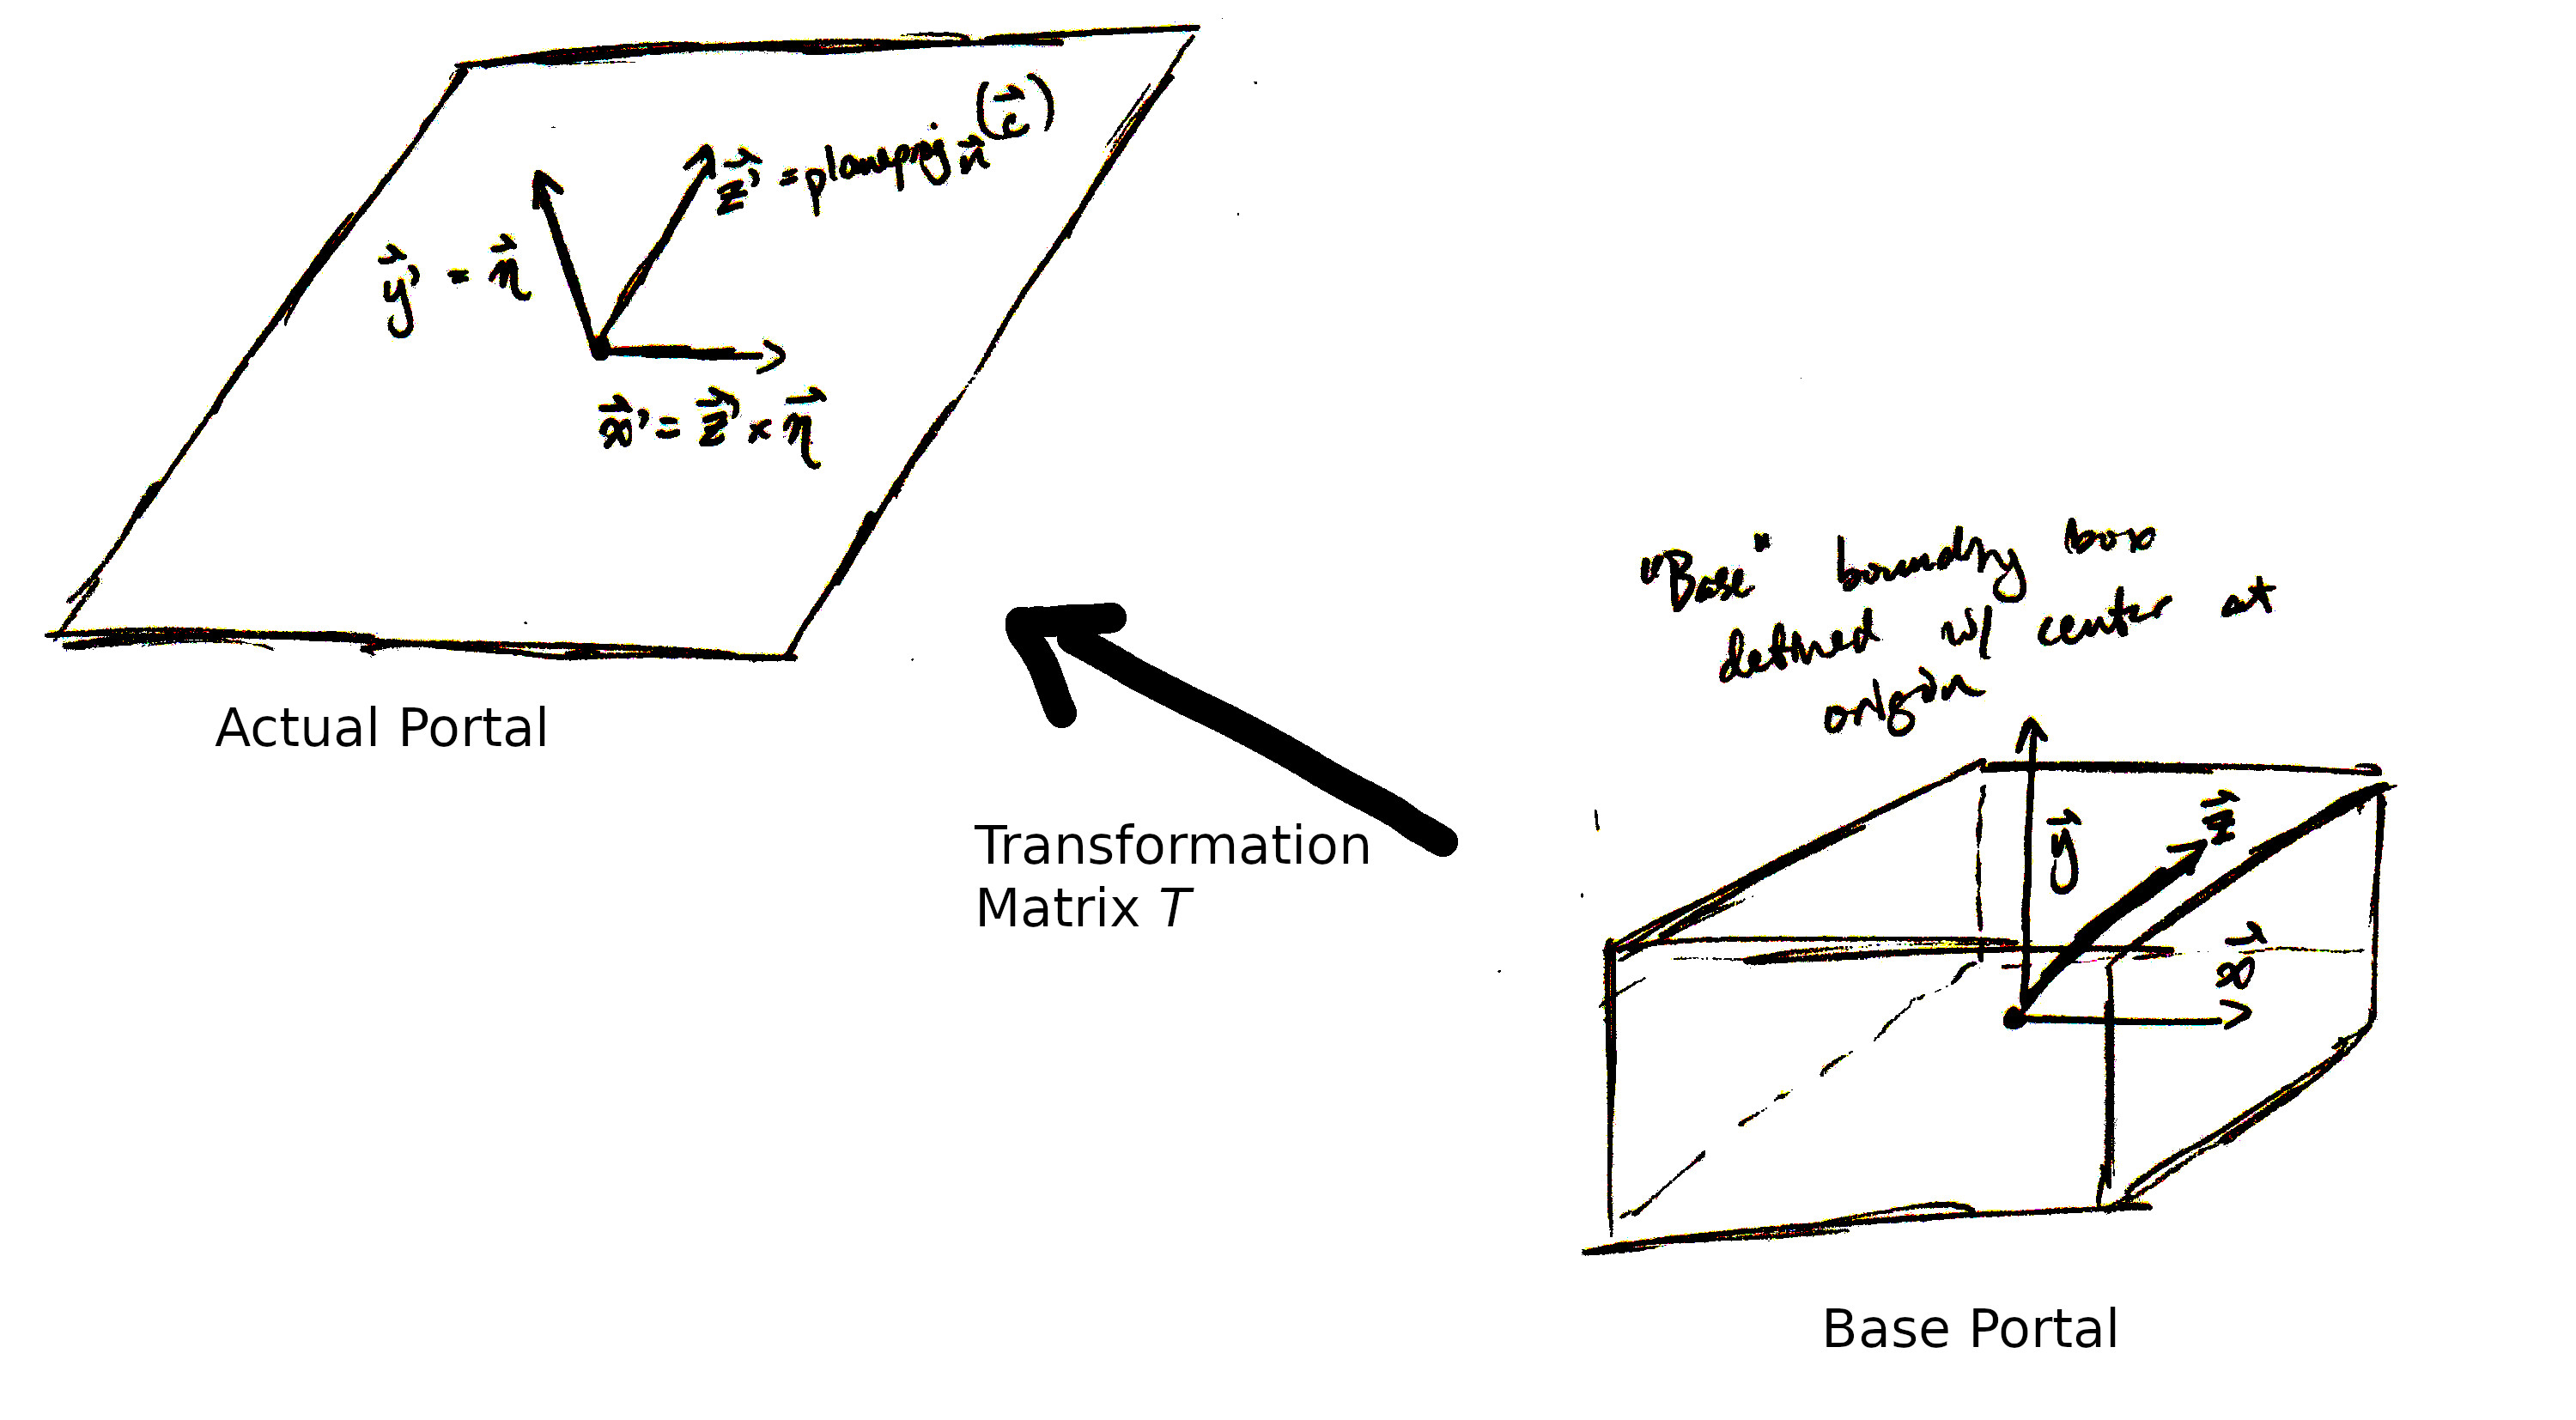 z⃗' = planeproj n⃗ (c⃗)
y⃗' = n⃗
x⃗' = z⃗' × n⃗
Actual Portal
Transformation
Matrix T
"Base" boundry box
defined w/ center at
origin
y⃗
z⃗
x⃗
Base Portal